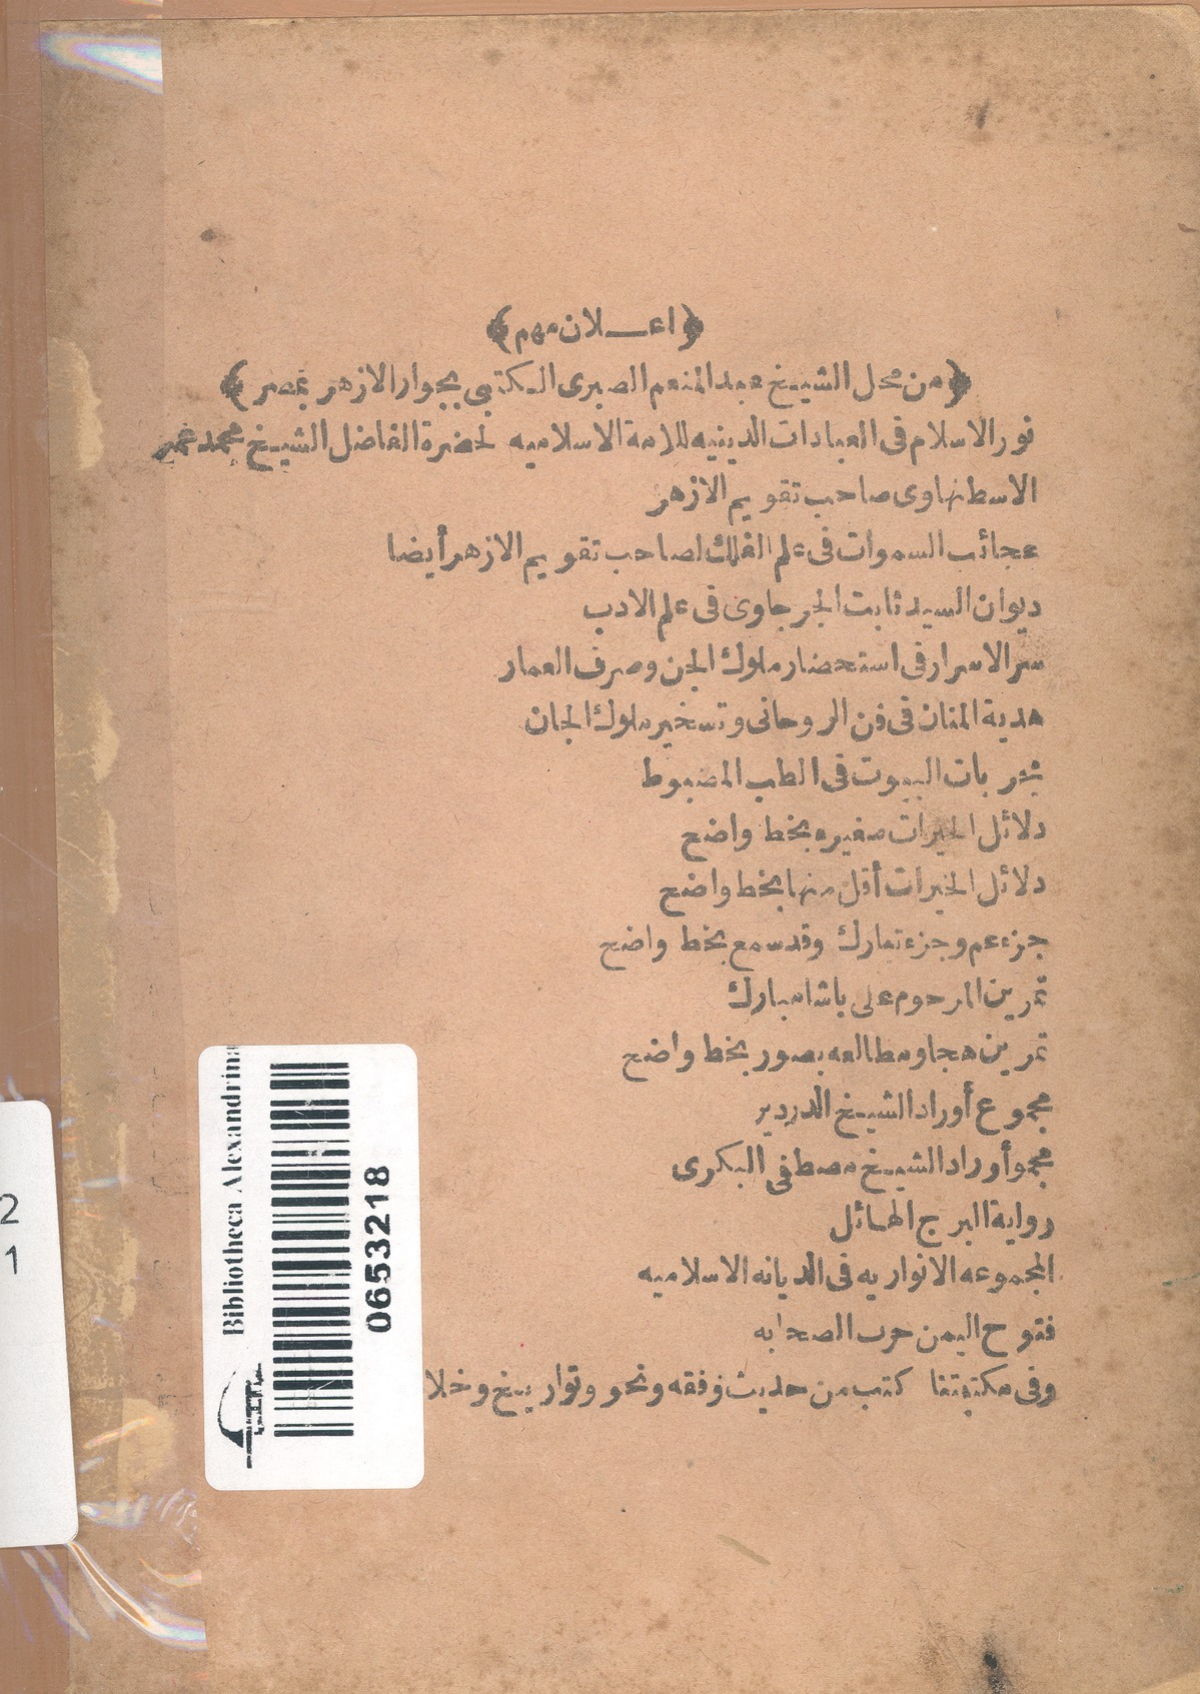 ﴿اعـــلان مهم﴾
﴿من محل الشيخ عبد المنعم الصبرى الكتبى بجوار الازهر بمصر﴾
نور الاسلام فى العبادات الدينيه للامة الاسلاميه لحضرة الفاضل الشيخ محمد عمر
الاسطنهاوى صاحب تقويم الازهر
عجائب السموات فى علم الفلك لصاحب تقويم الازهر أيضا
ديوان السيد ثابت الجرجاوى فى علم الادب
سر الاسرار فى استحضار ملوك الجن وصرف العمار
هدية المنان فى فن الروحانى وتسخير ملوك الجان
بات البيوت فى الطب المضبوط
دلائل الخيرات صغيره بخط واضح
دلائل الخيرات أقل منها بخط واضح
جزء عم وجزء تبارك وقد سمع بخط واضح
تمرين المرحوم على باشا مبارك
تمرين هجا ومطالعه بصور بخط واضح
مجموع أوراد الشيخ الدردير
مجمو أوراد الشيخ مصطفى البكرى
رواية البرج الهائل
المجموعه الانواريه فى الديانه الاسلاميه
فتوح اليمن حرب الصحابه
وفى مكتبتنا كتب من حديث وفقه ونحو وتواريخ وخلا
Bibliotheca Alexandrina
0653218
2
1